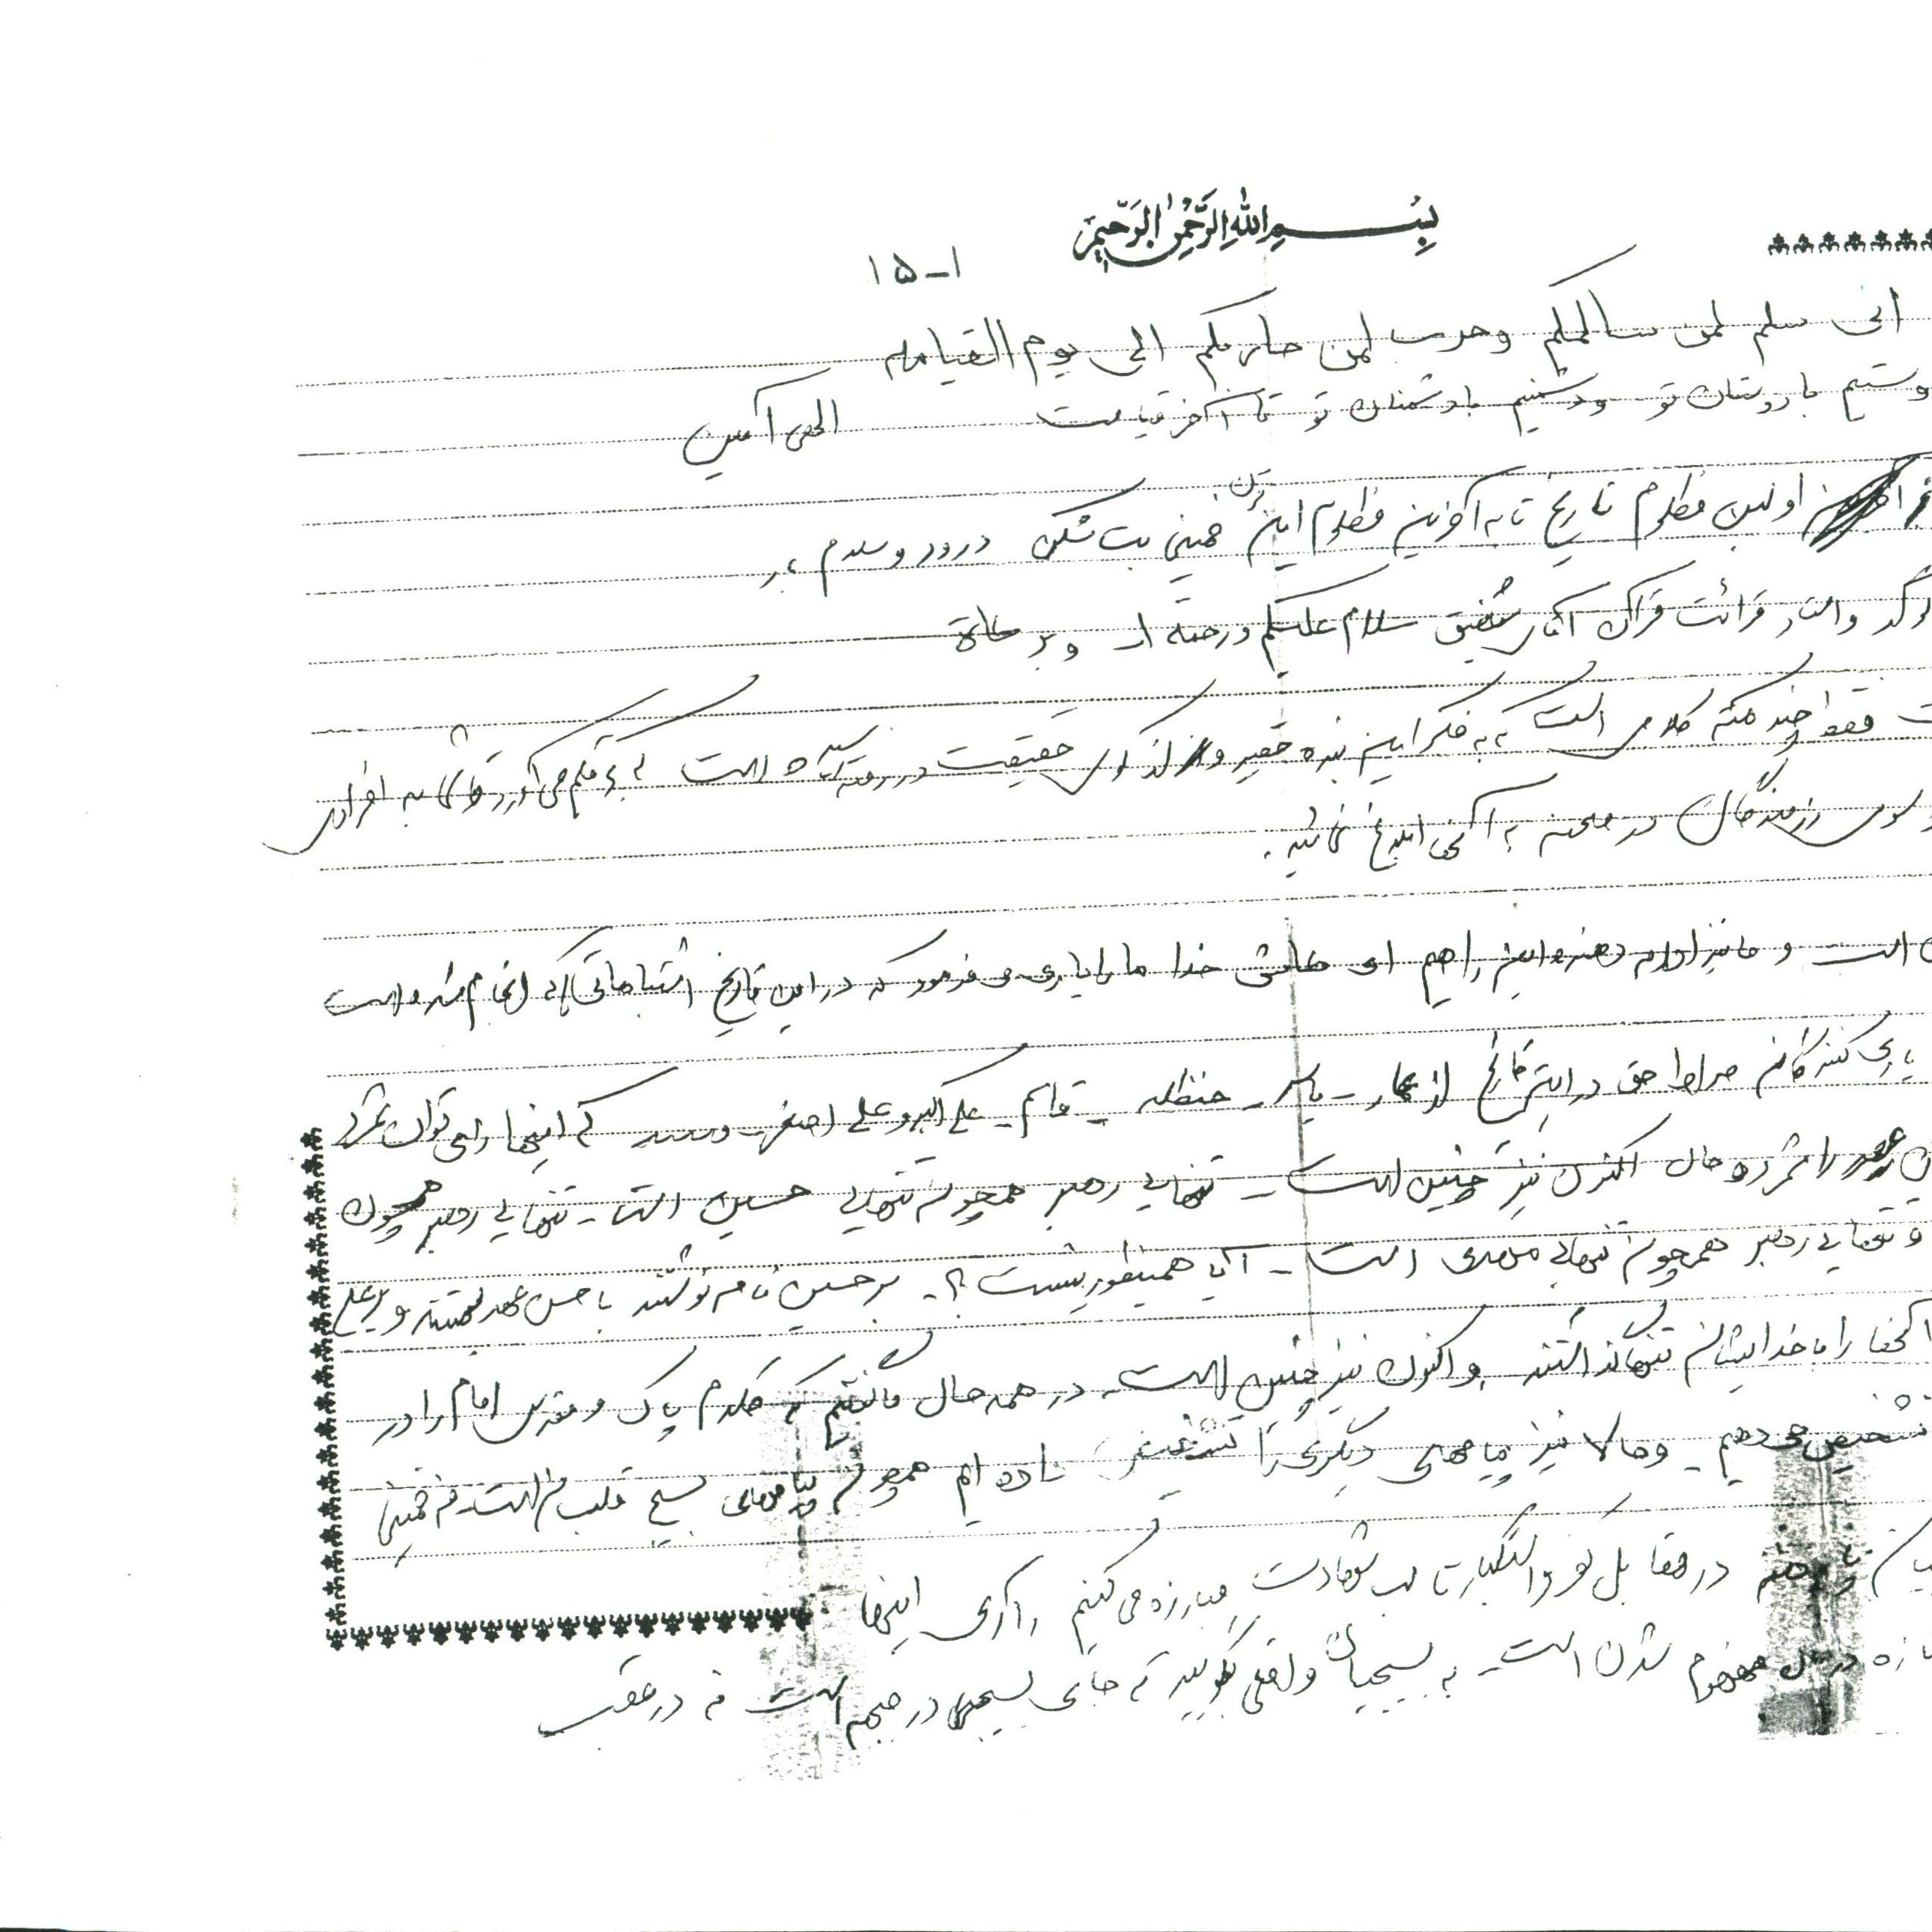 بسم الله الرحمن الرحیم
۱۵-۱
انی سلم لمن سالمکم وحرب لمن حاربکم الی یوم القیامه
با دوستان تو ودشمنیم با دشمنان تو تا آخر قیامت الهی آمین
اولین مظلوم تاریخ تا به آخرین مظلوم این قرن خمینی بت شکن درود وسلام بر
واستاد قرائت قرآن آقای شفیق سلام علیکم ورحمة الله وبرکاته
فقط چند نکته کلامی است که به فکر این بنده حقیر و حقیقت در رسیده است که به قلم می آورد به افرادی
سوی رزمندگان در صحنه به آنها ابلاغ نمائید.
است و ما نیز ادامه دهنده این راهیم ای کاش خدا ما را یاری می فرمود که در این تاریخ اشتباهاتی که انجام شده است
یاری کنندگان صراط حق در این تاریخ از عمار - یاسر - حنظله - قاسم - علی اکبر و علی اصغر که اینها را می توان شمرد
را شمرد حال اکنون نیز چنین است - تنهایی رهبر همچون تنهایی حسین است - تنهایی رهبر همچون
و تنهایی رهبر همچون تنهایی مهدی است - آیا همینطور نیست؟ - بر حسین نامه نوشتند با حسن عهد بستند و بر علی
آنها را با خدایشان تنها گذاشتند و اکنون نیز چنین است - در همه حال ما گفتیم که کلام پاک و مقدس امام را در
تشخیص می دهیم - وحالا نیز پیامهای دیگری را داده ایم همچون پیامهای بسیج قلب من است - من خمینی
در مقابل کفر و استکبار تا لب شهادت مبارزه می کنیم آری اینها
در حال مفهوم شدن است - به بسیجیان واقعی بگویید که جای بسیجی در جبهه است نه در عقب